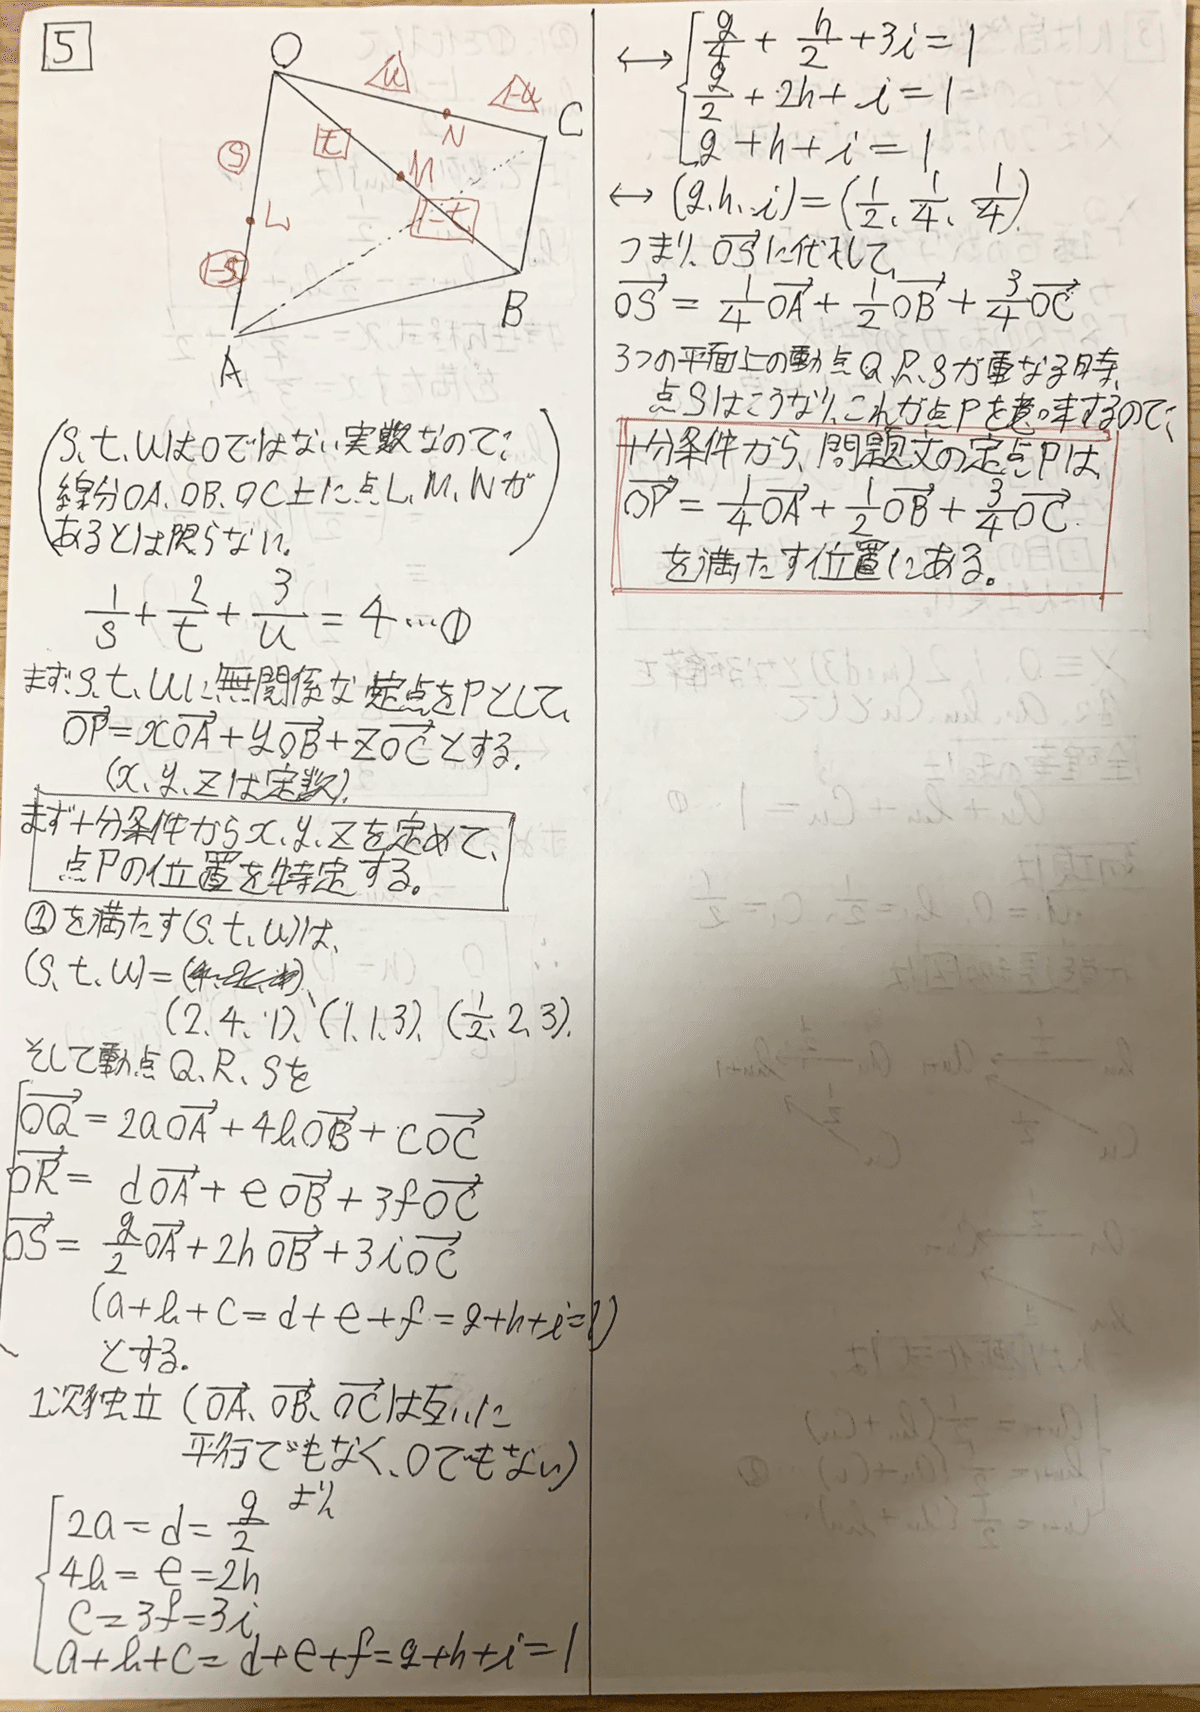 5
O
u
1-u
N
C
s
t
M
L
1-t
1-s
B
A
(s、t、uは0ではない実数なので、
線分OA、OB、OC上に点L、M、Nが
あるとは限らない。)
1/s + 2/t + 3/u = 4 …①
まず、s、t、uに無関係な定点をPとして、
OP→ = xOA→ + yOB→ + zOC→とする。
(x、y、zは定数)。
まず十分条件からx、y、zを定めて、
点Pの位置を特定する。
①を満たす(s、t、u)は、
(s、t、u)=
(2、4、1)、(1、1、3)、(1/2、2、3)。
そして動点Q、R、Sを
OQ→ = 2aOA→ + 4bOB→ + cOC→
OR→ = dOA→ + eOB→ + 3fOC→
OS→ = g/2 OA→ + 2hOB→ + 3iOC→
(a+b+c=d+e+f=g+h+i=1)
とする。
1次独立(OA→、OB→、OC→は互いに
平行でもなく、0でもない)
より、
2a = d = g/2
4b = e = 2h
c = 3f = 3i
a+b+c = d+e+f = g+h+i = 1
↔ g/4 + h/2 + 3i = 1
g/2 + 2h + i = 1
g + h + i = 1
↔ (g、h、i) = (1/2、1/4、1/4)
つまり、OS→に代入して、
OS→ = 1/4 OA→ + 1/2 OB→ + 3/4 OC→
3つの平面上の動点Q、R、Sが重なる時、
点Sはこうなり、これが点Pを意味するので、
十分条件から、問題文の定点Pは、
OP→ = 1/4 OA→ + 1/2 OB→ + 3/4 OC→
を満たす位置にある。